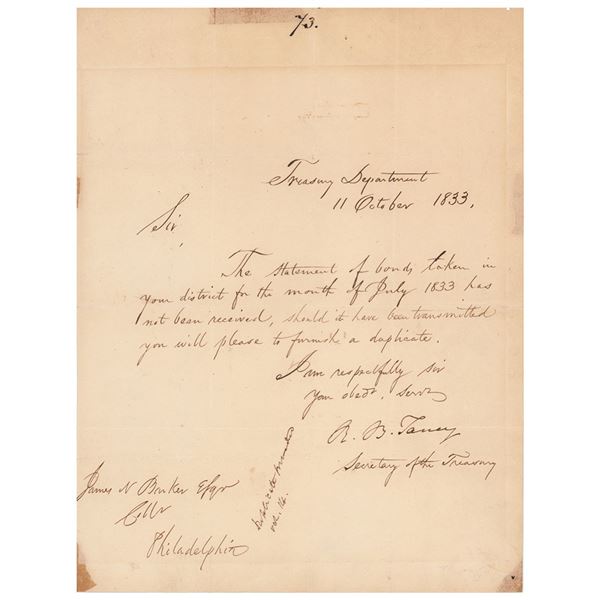 73.
Treasury Department
11 October 1833.
Sir,
The statement of bonds taken in
your district for the month of July 1833 has
not been received, should it have been transmitted
you will please to furnish a duplicate.
I am respectfully sir
your obedt. servt
R. B. Taney
Secretary of the Treasury
James N Barker Esqr
Collr
Philadelphia
Duplicate
oct. 16.